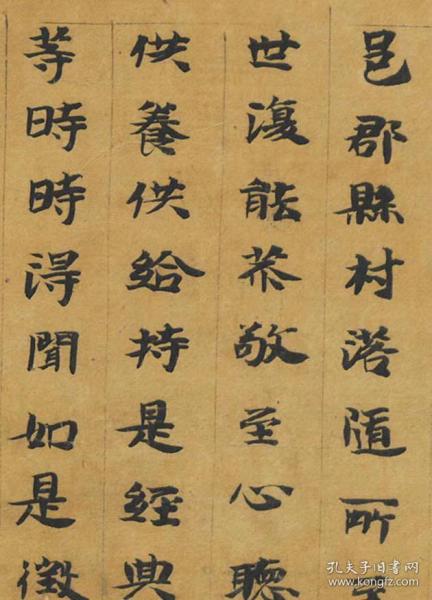 邑郡縣村落随所至
世復能恭敬至心聽
供養供給持是經典
等時時得聞如是微
孔夫子旧书网
www.kongfz.com